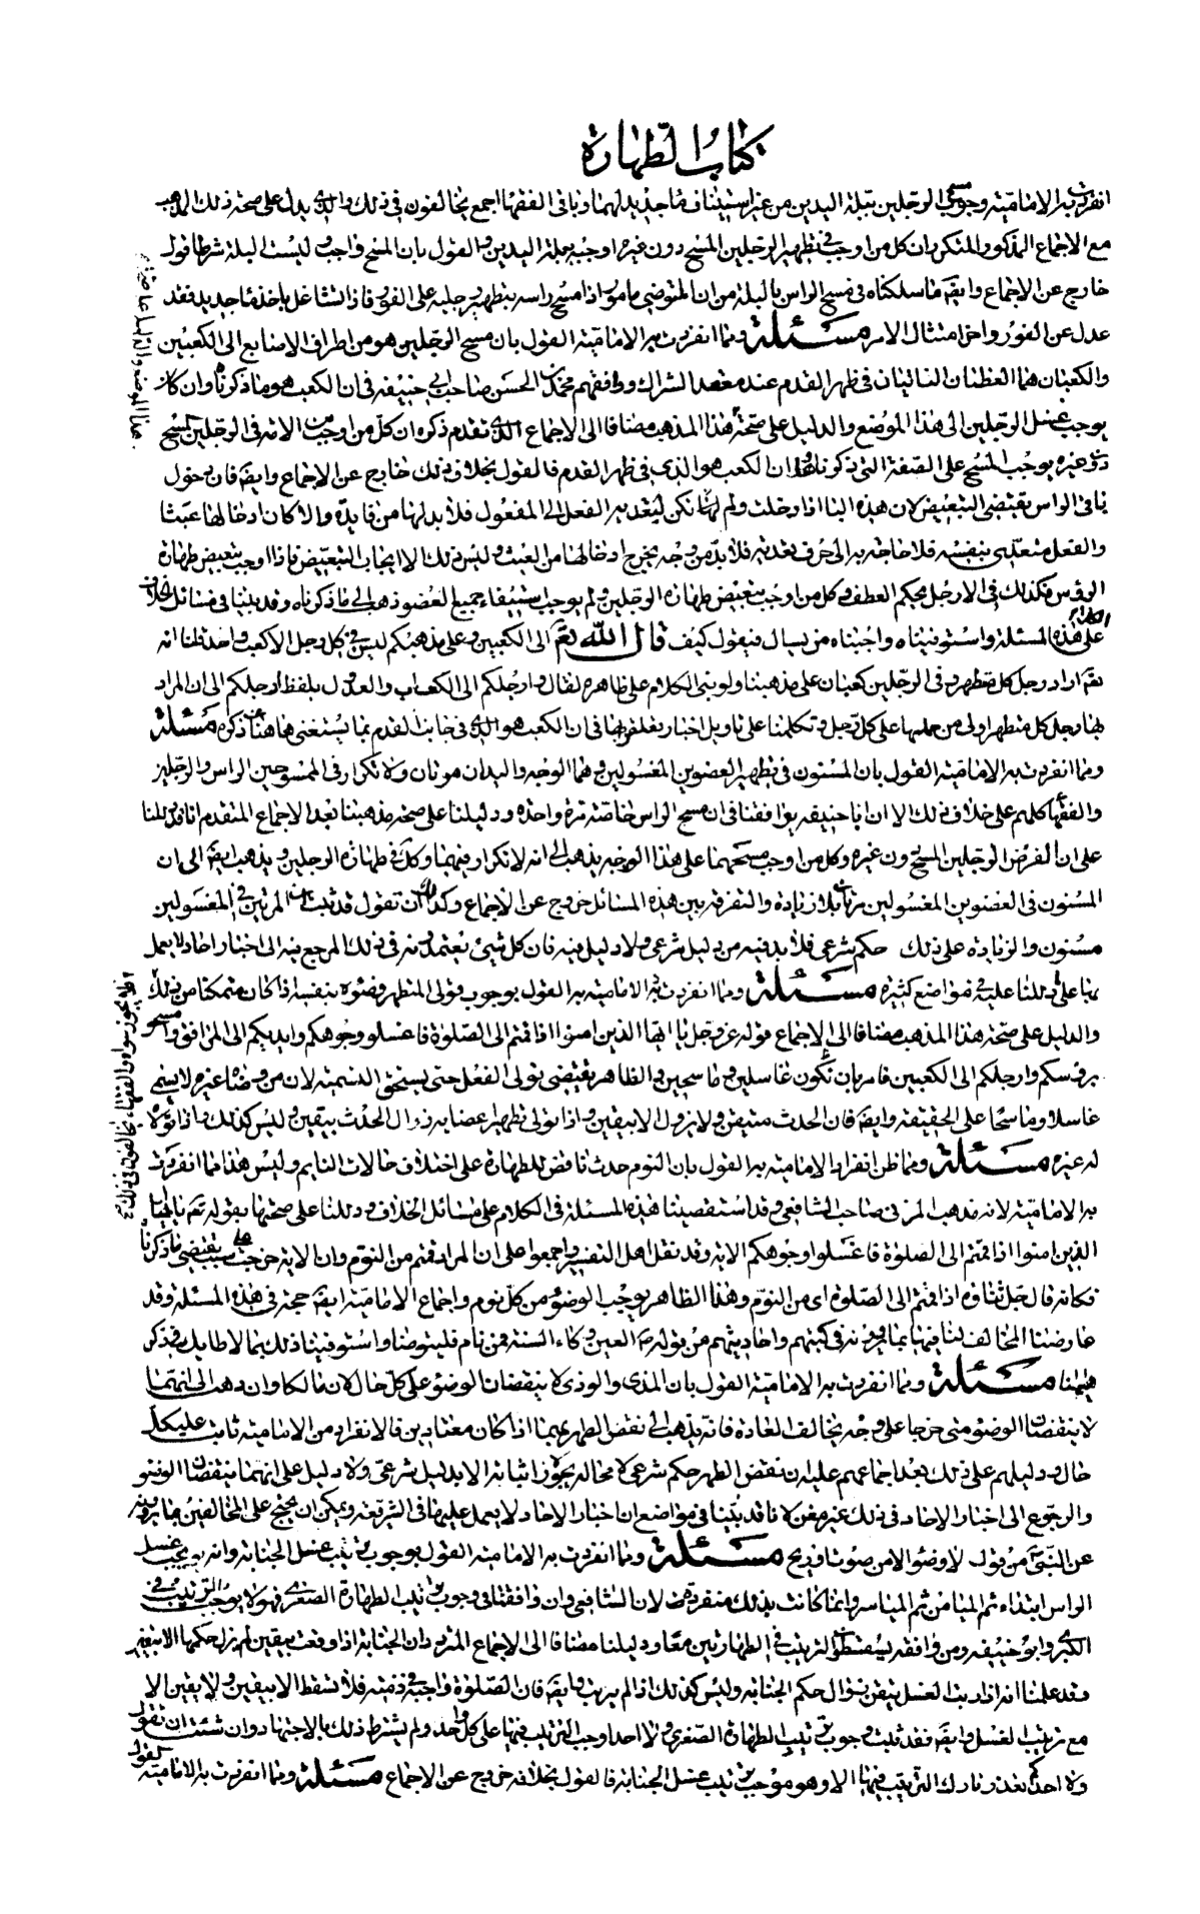 كتاب الطهارة
انفردت به الامامية وجوب مسح الرجلين ببلة اليدين من غير استيناف ماء جديد لهما وباقى الفقهاء اجمع يخالفون فى ذلك والذى يدل على صحة ذلك المذهب
مع الاجماع المذكور المتكرر ان كل من اوجب فى تطهير الرجلين المسح دون غيره اوجبه ببلة اليدين والقول بان المسح واجب وليست البلة شرطا قول
خارج عن الاجماع وايضا ما سلكناه فى مسح الراس بالبلة من ان المتوضى مامور اذا مسح راسه بتطهير رجليه على الفور فاذا تشاغل باخذ ماء جديد فقد
عدل عن الفور واخر امتثال الامر مسئلة ومما انفردت به الامامية القول بان مسح الرجلين هو من اطراف الاصابع الى الكعبين
والكعبان هما العظمان الناتيان فى ظهر القدم عند معقد الشراك ووافقهم محمد بن الحسن صاحب ابى حنيفة فى ان الكعب هو ما ذكرناه وان كان
يوجب غسل الرجلين الى هذا الموضع والدليل على صحة هذا المذهب مضافا الى الاجماع الذى تقدم ذكره ان كل من اوجب من الامة فى الرجلين المسح
دون غيره يوجب المسح على الصفة التى ذكرناها وان الكعب هو الذى فى ظهر القدم فالقول بخلاف ذلك خارج عن الاجماع وايضا فان دخول
باء فى الراس يقتضى التبعيض لان هذه الباء اذا دخلت ولم تكن ليتعدى الفعل الى المفعول فلا بد لها من فايدة والا كان ادخالها عبثا
والفعل متعدى بنفسه فلا حاجة به الى حرف تعدية فلا بد من وجه يخرج ادخالها من العبث وليس ذلك الا ايجاب التبعيض فاذا اوجب تبعيض طهارة
الرؤس فكذلك فى الارجل بحكم العطف وكل من اوجب تبعيض طهارة الرجلين ولم يوجب استيفاء جميع العضو ذهب الى ما ذكرناه وقد بينا فى مسائل الخلاف
الكلام على هذه المسئلة واستوفيناه واجبناه من يسال فيقول كيف قال الله تعم الى الكعبين وعلى مذهبكم ليس فى كل رجل الا كعب واحد قلنا انه
تعم اراد رجل كل متطهر وفى الرجلين كعبان على مذهبنا ولو بنى الكلام على ظاهره لقال وارجلكم الى الكعاب والعدول بلفظ ارجلكم الى ان المراد
بها رجل كل متطهر اولى من حملها على كل رجل وتكلمنا على تاويل اخبار تعلقوا بها فى ان الكعب هو الذى فى جانب القدم بما يستغنى هاهنا عن ذكره مسئلة
ومما انفردت به الامامية القول بان المسنون فى تطهير العضوين المغسولين وهما الوجه واليدان مرتان ولا تكرار فى الممسوحين الراس والرجلين
والفقهاء كلهم على خلاف ذلك الا ان ابا حنيفة يوافقنا فى ان مسح الراس خاصة مرة واحدة ودليلنا على صحة مذهبنا بعد الاجماع المتقدم انا قد دللنا
على ان الفرض الرجلين المسح دون غيره وكل من اوجب مسحهما على هذا الوجه يذهب الى انه لا تكرار فيهما وكل فى طهارة الرجلين ويذهب ايضا الى ان
المسنون فى العضوين المغسولين مرتان بلا زيادة والتفرقة بين هذه المسائل خروج عن الاجماع وكذلك ان تقول قد ثبت ان المرتين فى المغسولين
مسنون والزيادة على ذلك حكم شرعى فلا بد فيه من دليل شرعى ولا دليل فيه فان كل شيئ يعتمدونه فى ذلك المرجع فيه الى اخبار احاد لا يعمل
بها على ما دللنا عليه فى مواضع كثيرة مسئلة ومما انفردت به الامامية القول بوجوب تولى المتطهر وضوءه بنفسه اذا كان متمكنا من ذلك
والدليل على صحة هذا المذهب مضافا الى الاجماع قوله عز وجل يا ايها الذين امنوا اذا قمتم الى الصلوة فاغسلوا وجوهكم وايديكم الى المرافق وامسحوا
برؤسكم وارجلكم الى الكعبين فامر بان تكون غاسلين وماسحين والظاهر يقتضى تولى الفعل حتى يستحق التسمية لان من وضاه غيره لا يسمى
غاسلا وماسحا على الحقيقة وايضا فان الحدث متيقن ولا يزول الا بيقين واذا تولى تطهير اعضائه زوال الحدث بيقين وليس كذلك اذا تولاه
له غيره مسئلة ومما ظن انفراد الامامية به القول بان النوم حدث ناقض للطهارة على اختلاف حالات النايم وليس هذا مما انفردت
به الامامية لانه مذهب المزنى صاحب الشافعى وقد استقصينا هذه المسئلة فى الكلام على مسائل الخلاف ودللنا على صحتها بقوله تعم يا ايها
الذين امنوا اذا قمتم الى الصلوة فاغسلوا وجوهكم الاية وقد نقل اهل التفسير واجمعوا على ان المراد قمتم من النوم وان الاية خرجت على سبب يقتضى ما ذكرناه
فكانه قال جل ثناؤه اذا قمتم الى الصلوة اى من النوم وهذا الظاهر يوجب الوضوء من كل نوم واجماع الامامية ايضا حجة فى هذه المسئلة وقد
عارضنا المخالف لنا فيها بما يروونه فى كتبهم واحاديثهم من قوله العين وكاء السته فمن نام فليتوضا واستوفينا ذلك بما لا طايل فى ذكره
هيهنا مسئلة ومما انفردت به الامامية القول بان المذى والوذى لا ينقضان الوضوء على كل حال لان مالكا وان ذهب الى انهما
لا ينقضان الوضوء متى خرجا على وجه يخالف العادة فانه يذهب الى نقض الطهر بهما اذا كان معتادين فالانفراد من الامامية ثابت على كل
حال ودليلهم على ذلك بعد اجماعهم عليه ان نقض الطهر حكم شرعى لا محالة يجوز اثباته الا بدليل شرعى ولا دليل على انهما ينقضان الوضوء
والرجوع الى اخبار الاحاد فى ذلك غير مغن لانا قد بينا فى مواضع ان اخبار الاحاد لا يعمل عليها فى الشريعة ويمكن ان يحتج على المخالفين بما يروونه
عن النبى ص من قوله لا وضوء الا من صوت او ريح مسئلة ومما انفردت به الامامية القول بوجوب ترتيب غسل الجنابة وانه يجب غسل
الراس ابتداء ثم الميامن ثم المياسر وانما كانت بذلك منفردة لان الشافعى وان وافقنا فى وجوب ترتيب الطهارة الصغرى فهو لا يوجب الترتيب فى
الكبرى وابو حنيفة ومن وافقه يسقط الترتيب فى الطهارتين معا ودليلنا مضافا الى الاجماع المتردد ان الجنابة اذا وقعت بيقين لم يزل حكمها الا بيقين
وقد علمنا انه اذا رتب الغسل تيقن زوال حكم الجنابة وليس كذلك اذا لم يرتب وايضا فان الصلوة واجبة فى ذمته فلا تسقط الا بيقين ولا يقين الا
مع ترتيب الغسل وايضا فقد ثبت وجوب ترتيب الطهارة الصغرى ولا احد اوجب الترتيب فيها على كل احد ولم يشترط ذلك بالاجتهاد وان شئت ان تقول
ولا احد بعذر تارك الترتيب فيها الا وهو موجب ترتيب غسل الجنابة فالقول بخلافه خروج عن الاجماع مسئلة ومما انفردت به الامامية القول